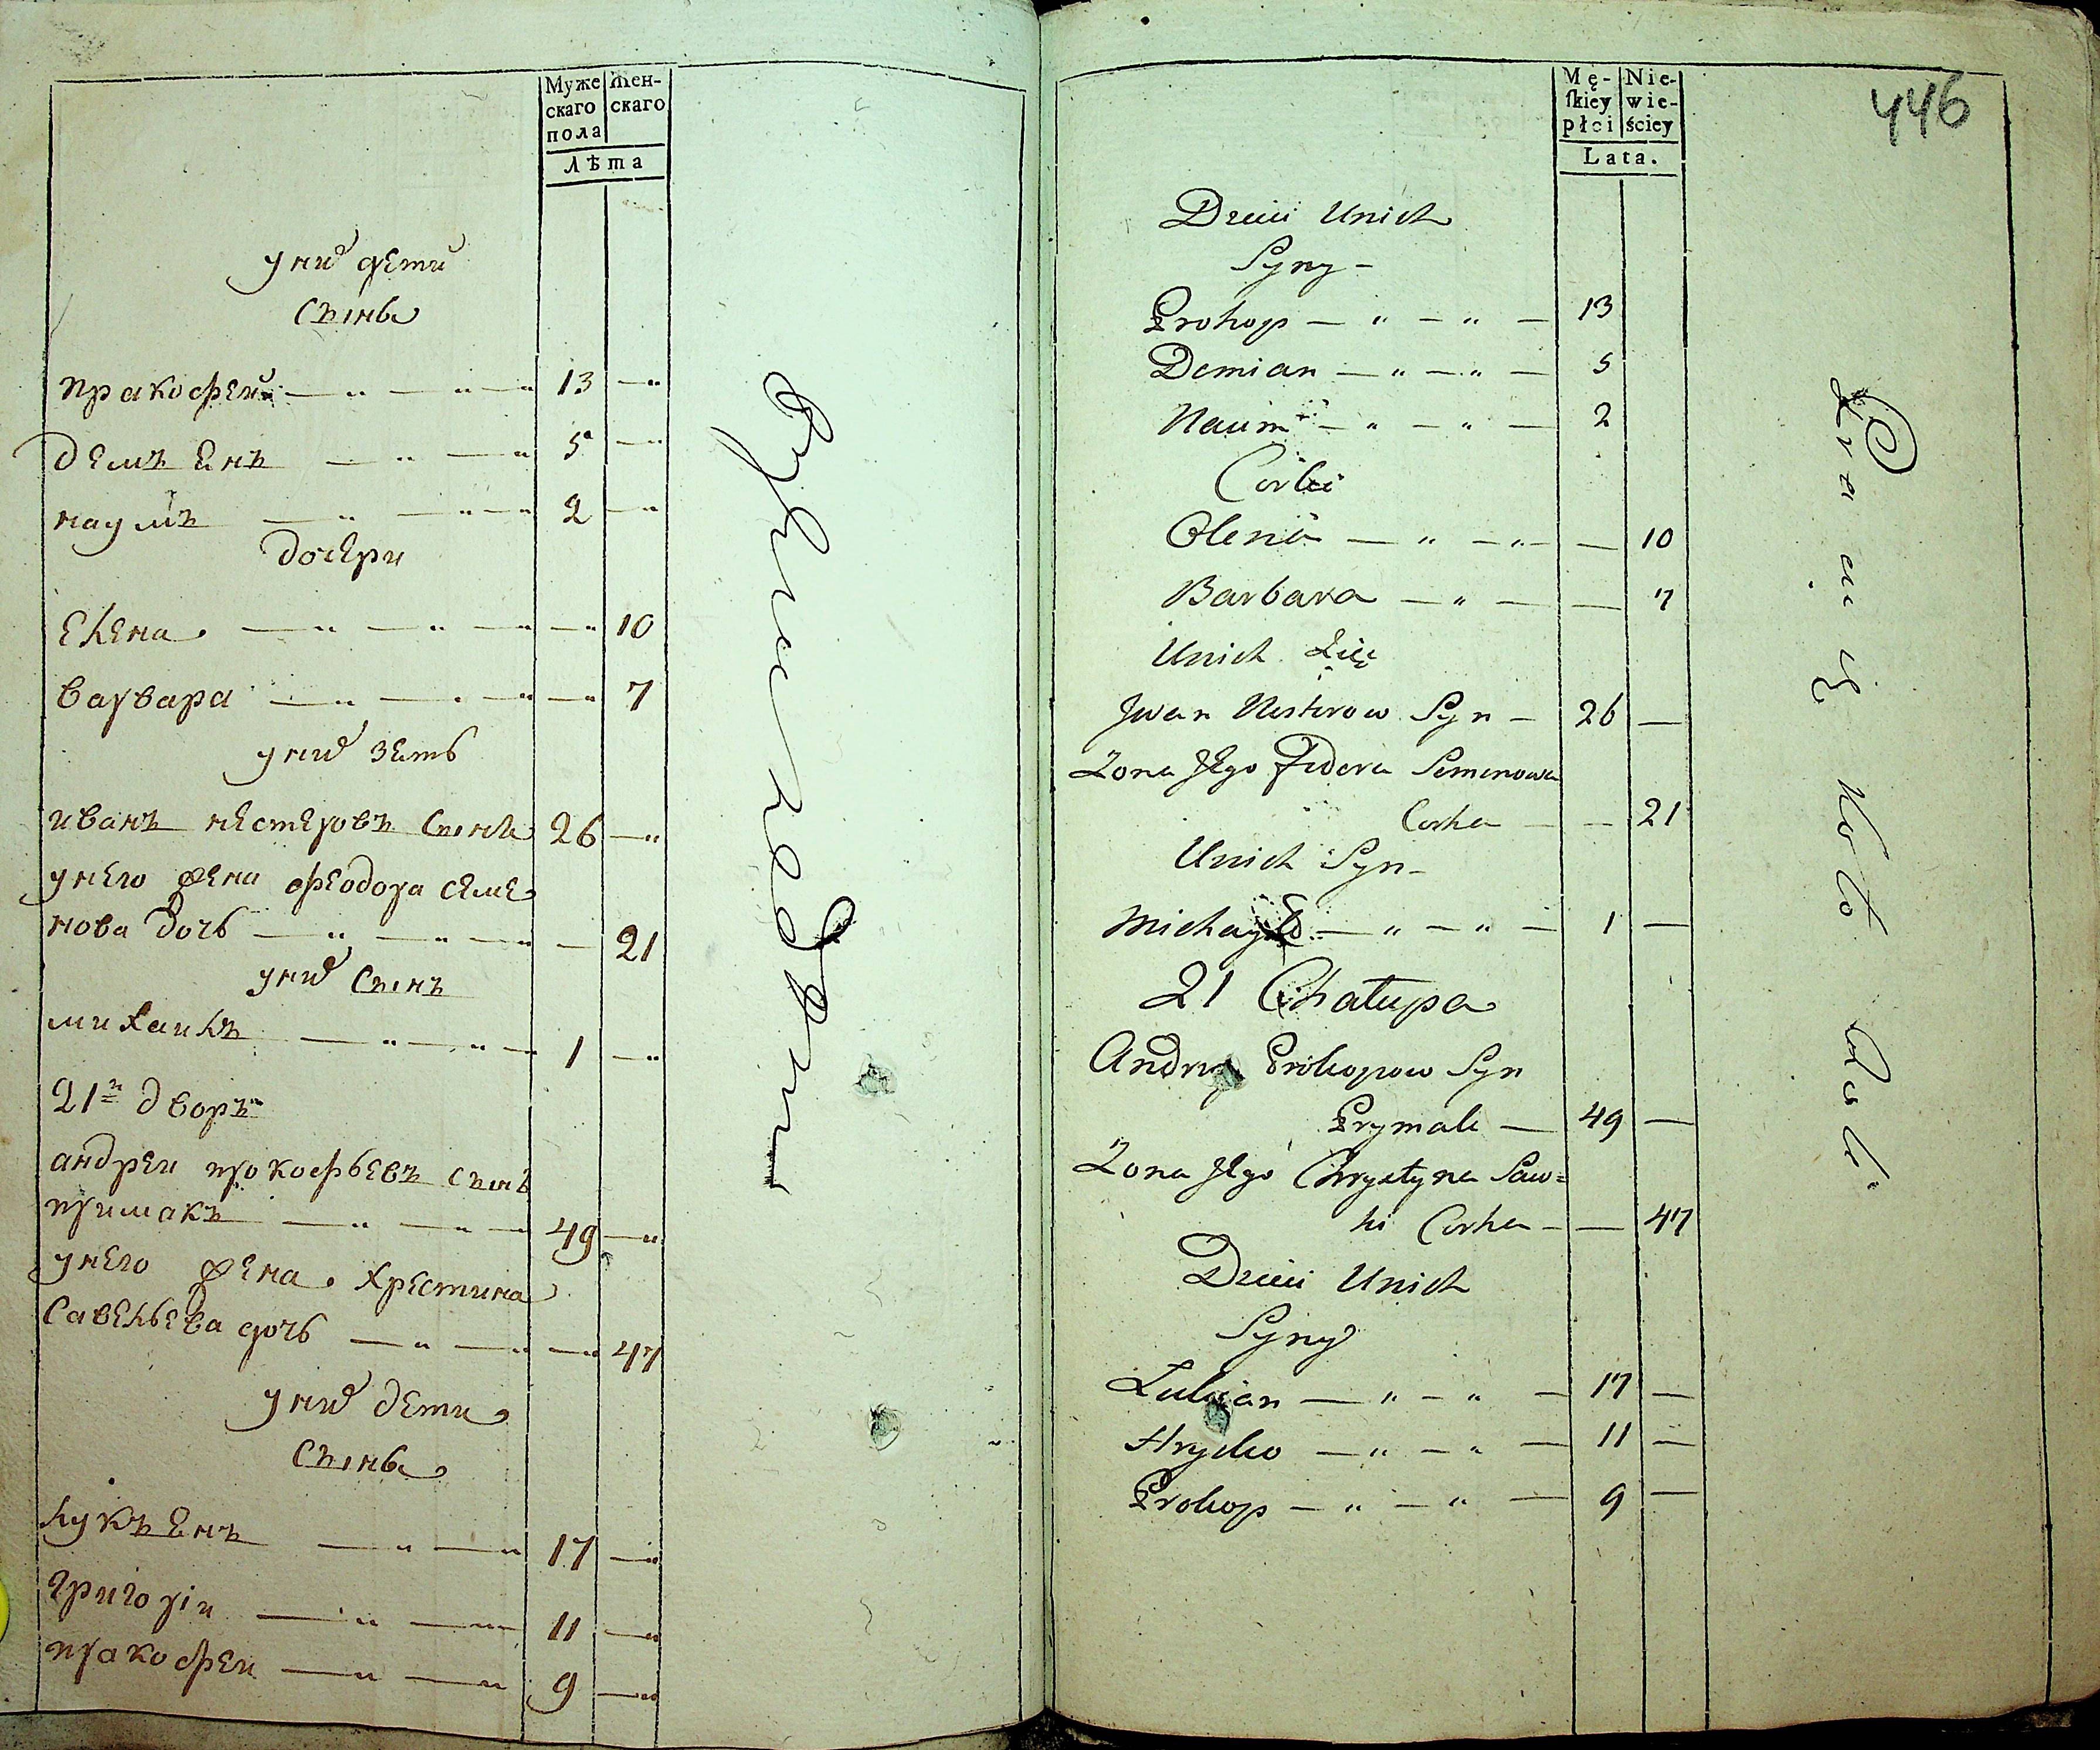 Муже скаго пола
Жен- скаго
Лѣта
у них дети
сыны
пракофей — " — " — " 13 — "
демъенъ — " — " 5 — "
наумъ — " — " — " 2 — "
дочери
Елена — " — " — " — " 10
Варвара — " — " — " — " 7
у них зеть
иванъ нестеровъ сынъ 26 — "
у него жена феодора семе
нова дочь — " — " — " — 21
у них сынъ
михаилъ — " — " — 1 — "
21й дворъ
андреи прокофьевъ сынъ
примакъ — " — " — 49 — "
у него жена Христина
Савельева дочь — " — " — " 47
у них дети
сыны
лукъенъ — " — " 17 — "
григории — " — " 11 — "
пракофеи — " — " 9 — "
446
Mę- skiey płci
Nie- wie- ściey
Lata.
Dzieci Unich
Syny -
Prokop — " — " — 13
Demian — " — " — 5
Naum — " — " — 2
Corki
Olena — " — " — — 10
Barbara — " — — 7
Unich Zięć
Jwan Nesterow Syn — 26 —
Zona Jego Fedora Semenowa
Corka — — 21
Unich Syn -
Michayło — " — " — 1 —
21 Chałupa
Andrey Prokopow Syn
Prymak — 49 —
Zona Jego Chrystyna Saw=
ki Corka — — 47
Dzieci Unich
Syny
Lukian — " — " — 17 —
Hryćko — " — " — 11 —
Prokop — " — " — 9 —